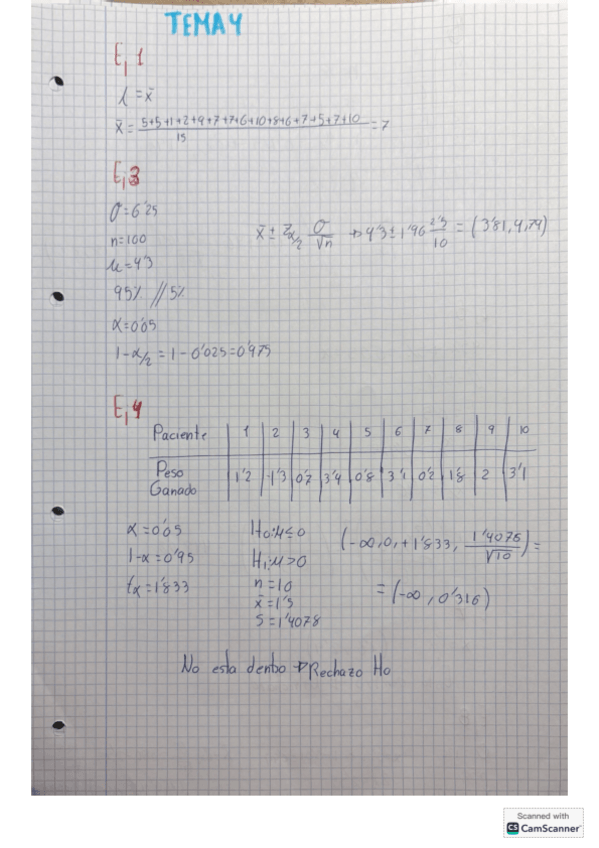 TEMA 4
Ej 1
λ = x̄
x̄ = 5+5+1+2+9+7+7+6+10+8+6+7+5+7+10 / 15 = 7
Ej 3
σ = 6'25
n = 100
μ = 4'3
95% // 5%
α = 0'05
1 - α/2 = 1 - 0'025 = 0'975
x̄ ± Zα/2 σ/√n → 4'3 ± 1'96 2'5/10 = (3'81, 4,79)
Ej 4
Paciente | 1 | 2 | 3 | 4 | 5 | 6 | 7 | 8 | 9 | 10
Peso Ganado | 1'2 | -1'3 | 0'7 | 3'4 | 0'8 | 3'1 | 0'2 | 1'8 | 2 | 3'1
α = 0'05
1-α = 0'95
tα = 1'833
H0: μ ≤ 0
H1: μ > 0
n = 10
x̄ = 1'5
S = 1'4078
(-∞, 0, + 1'833, 1'4078/√10) =
= (-∞, 0'316)
No esta dentro → Rechazo H0
Scanned with
CS CamScanner